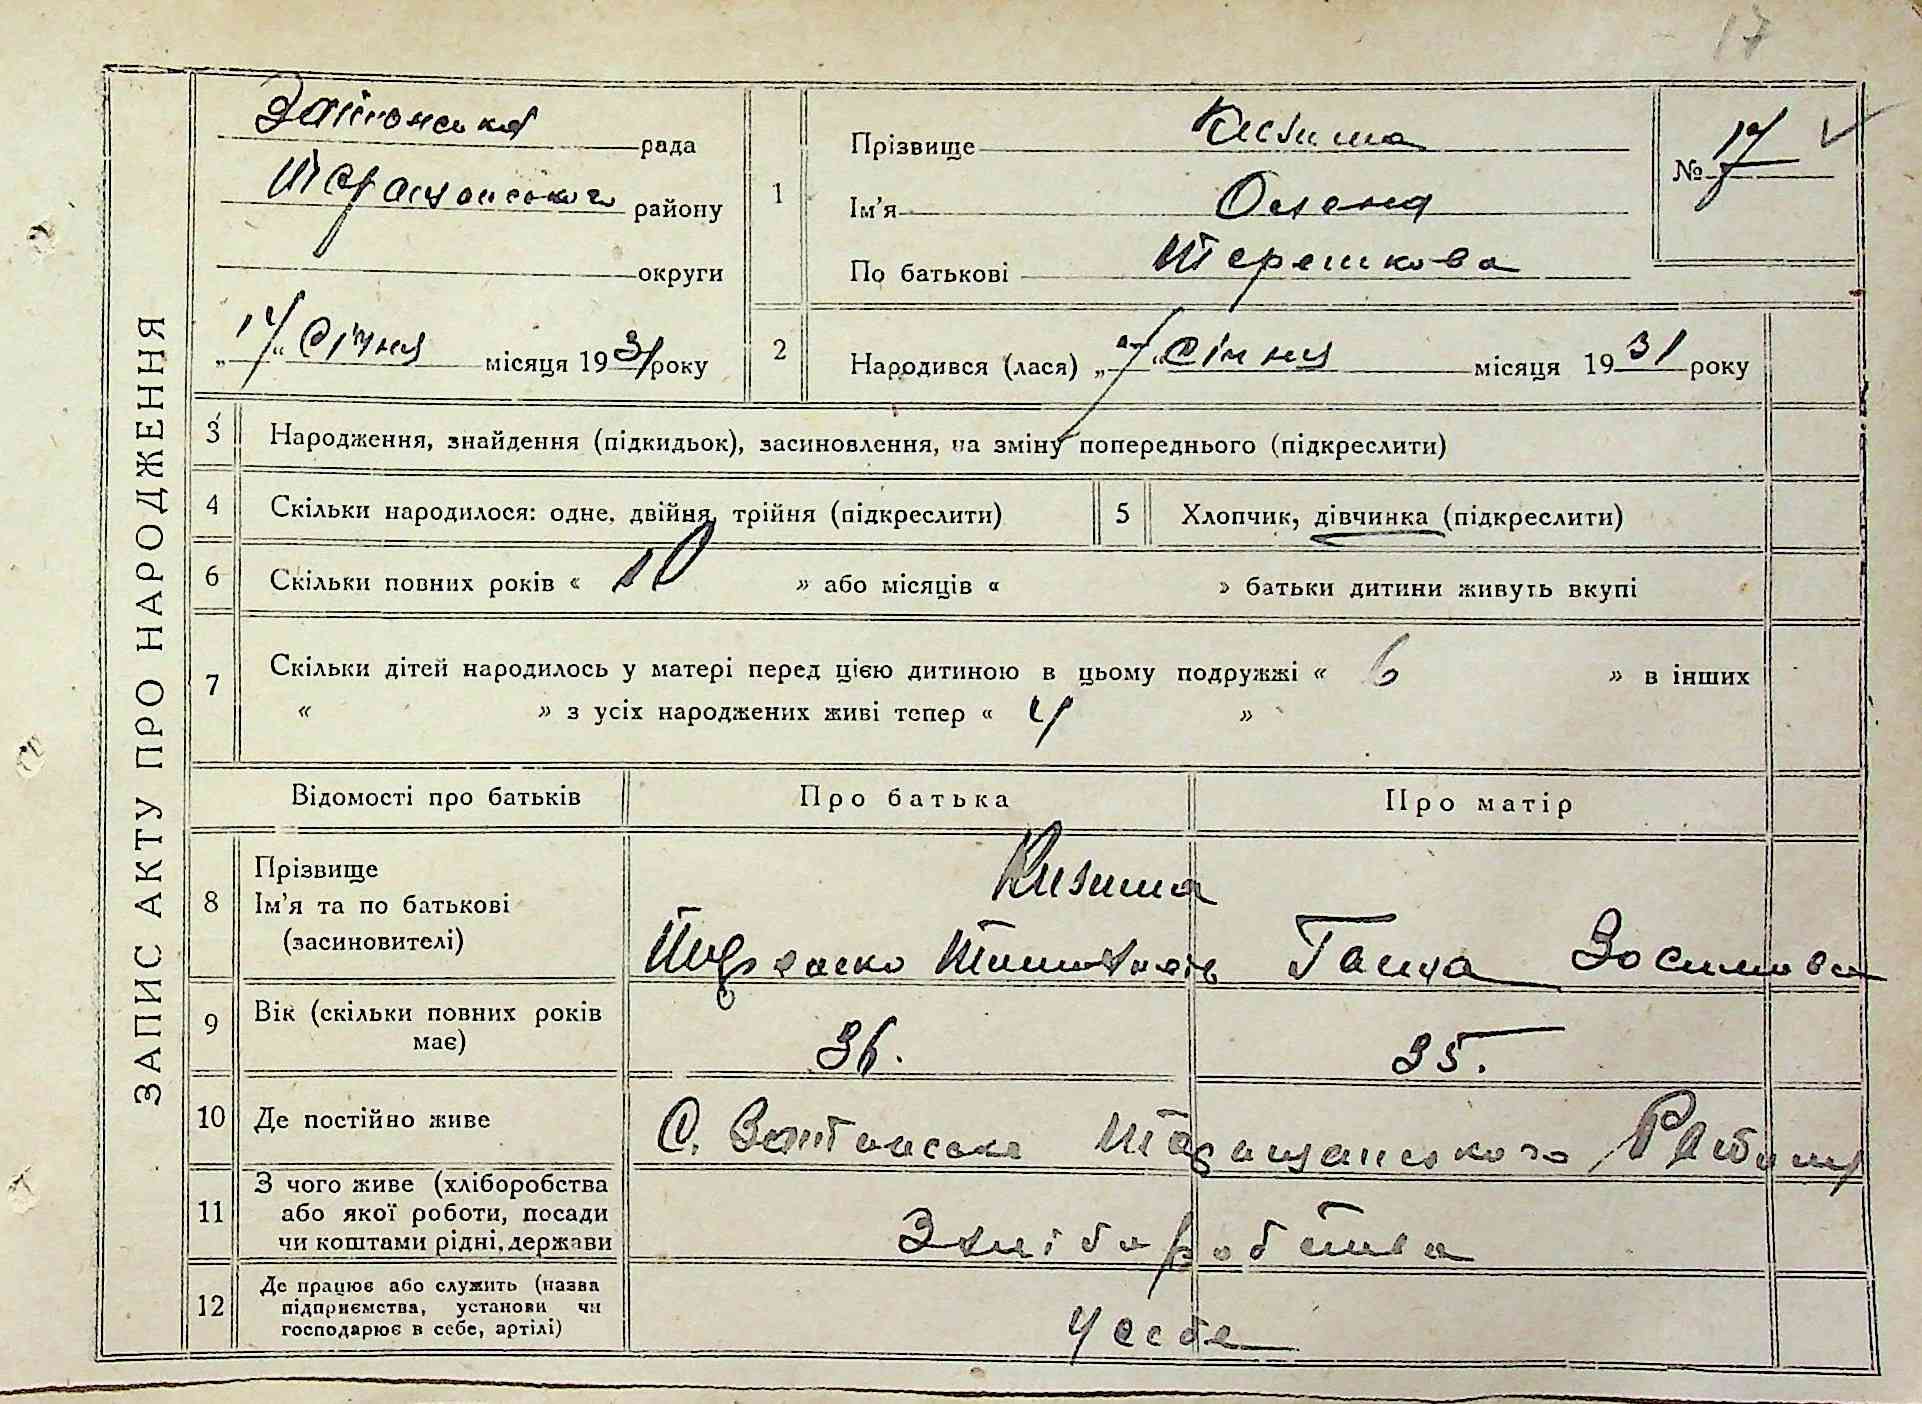 17
ЗАПИС АКТУ ПРО НАРОДЖЕННЯ
рада
району
округи
"17" Січня місяця 1931 року
№ 17
1
Прізвище Кизима
Ім'я Олена
По батькові Терешкова
2
Народився (лася) "7" Січня місяця 1931 року
3 Народження, знайдення (підкидьок), засиновлення, на зміну попереднього (підкреслити)
4 Скільки народилося: одне, двійня, трійня (підкреслити)
5 Хлопчик, дівчинка (підкреслити)
6 Скільки повних років « 10 » або місяців « » батьки дитини живуть вкупі
7 Скільки дітей народилось у матері перед цією дитиною в цьому подружжі « 6 » в інших
« » з усіх народжених живі тепер « 4 »
Відомості про батьків Про батька Про матір
8 Прізвище
Ім'я та по батькові
(засиновителі)
Кизима
Ганна Зосимова
9 Вік (скільки повних років
має)
36. 35.
10 Де постійно живе
С. Таращанського Району
11 З чого живе (хліборобства
або якої роботи, посади
чи коштами рідні, держави
З хліборобства
12 Де працює або служить (назва
підприємства, установи чи
господарює в себе, артілі)
У себе